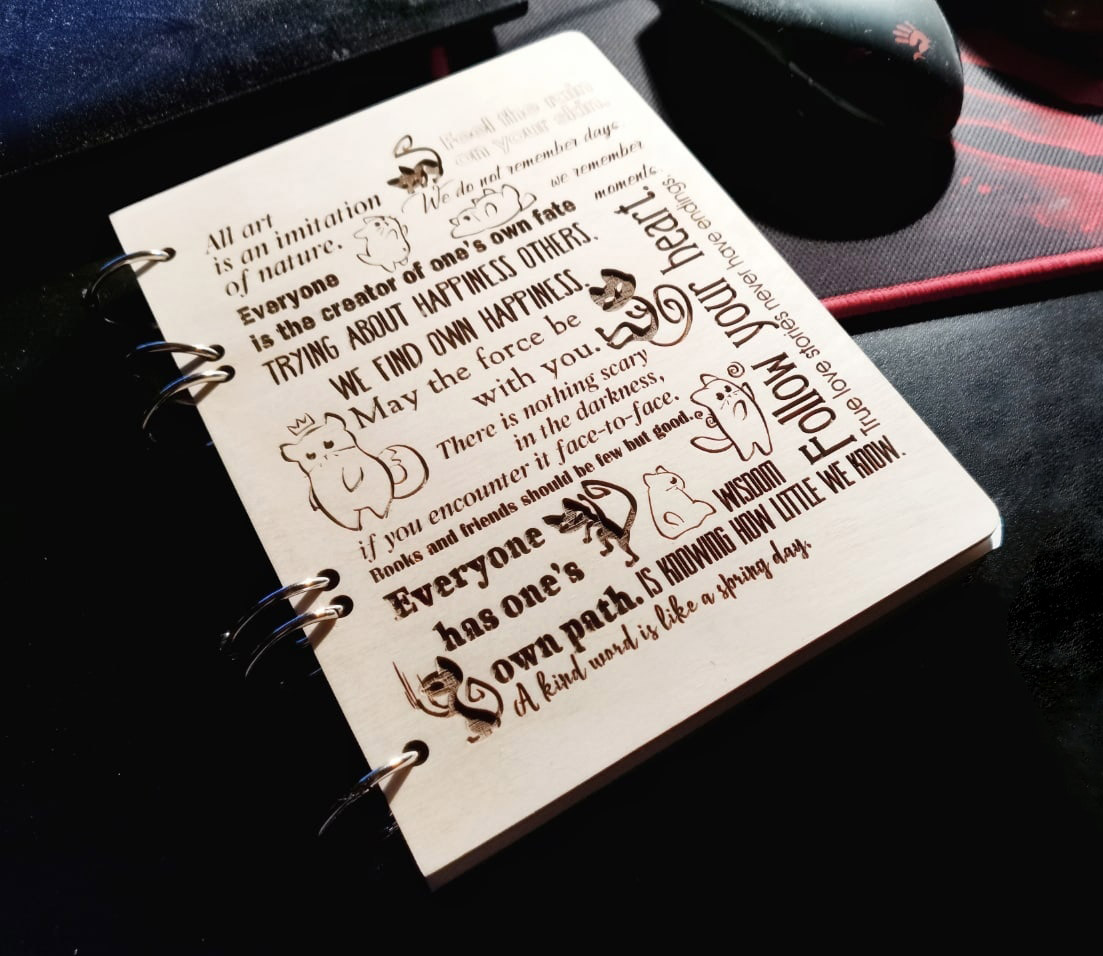 Feel the rain
on your skin.
We do not remember days
we remember
moments.
All art
is an imitation
of nature.
Everyone
is the creator of one's own fate
TRYING ABOUT HAPPINESS OTHERS.
WE FIND OWN HAPPINESS.
May the force be
with you.
There is nothing scary
in the darkness,
if you encounter it face-to-face.
Books and friends should be few but good.
Everyone
has one's
own path.
WISDOM
IS KNOWING HOW LITTLE WE KNOW.
A kind word is like a spring day.
Follow your heart.
True love stories never have endings.